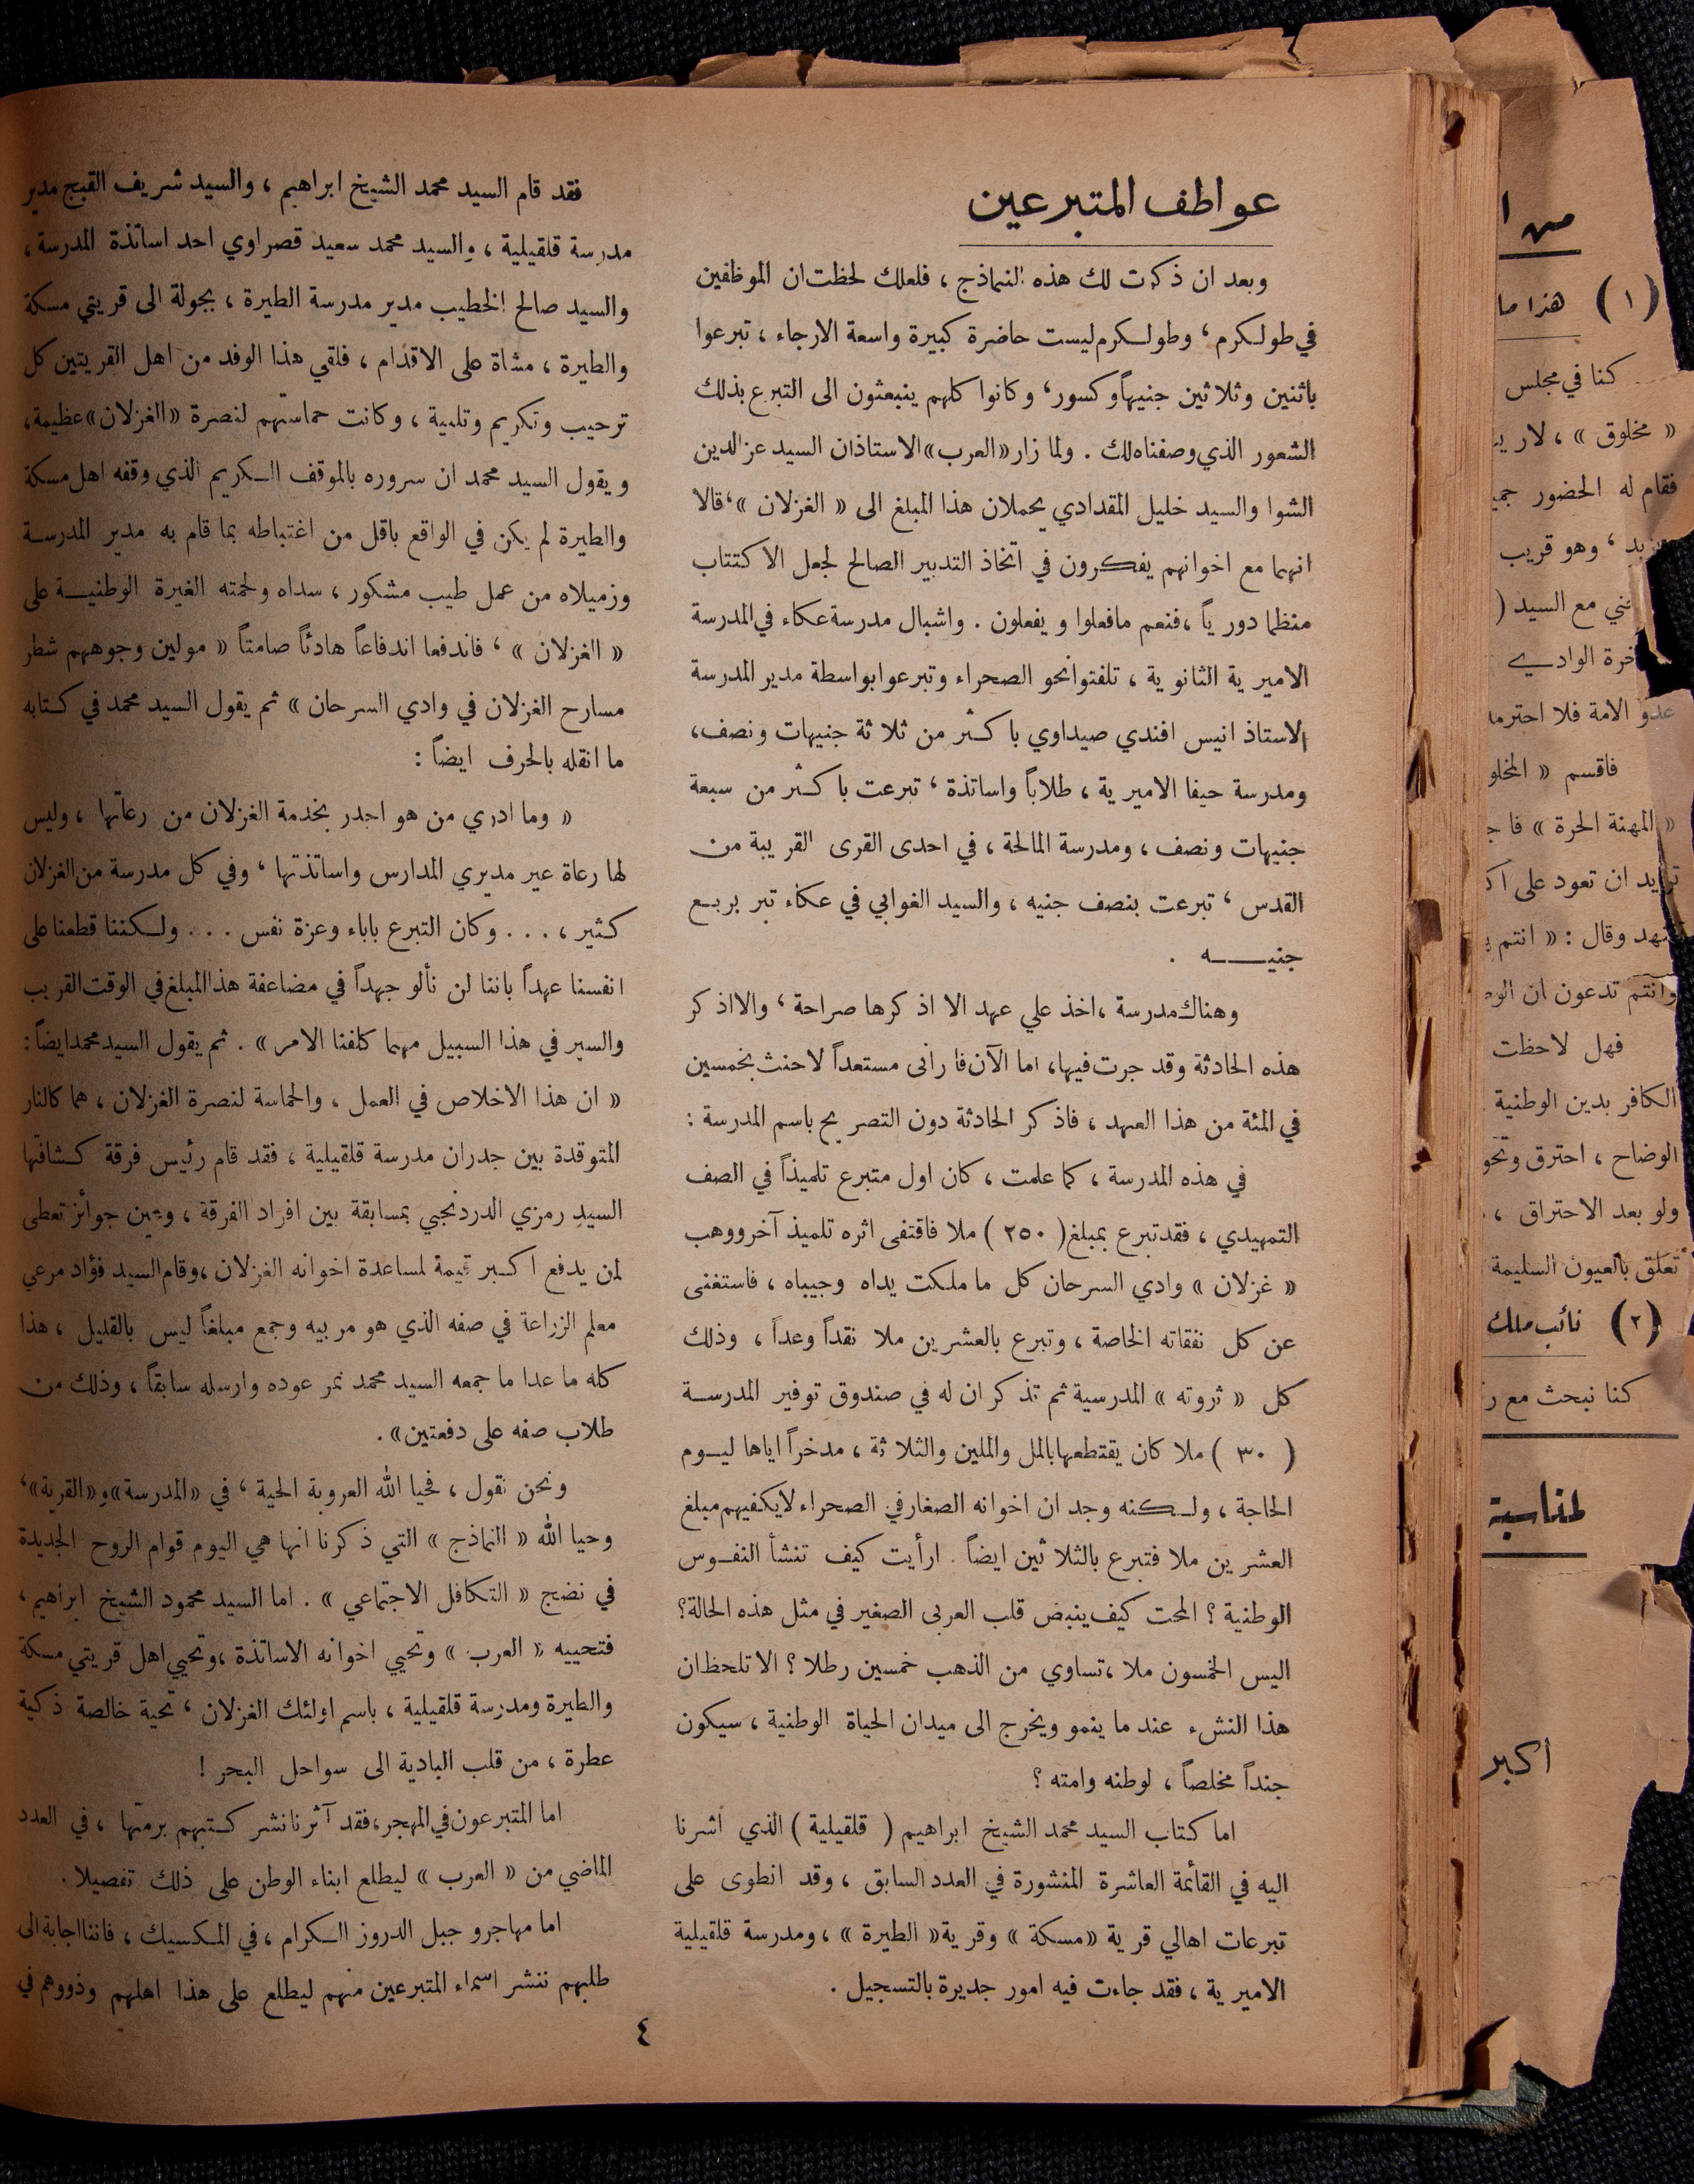 عواطف المتبرعين
وبعد ان ذكرت لك هذه النماذج ، فلعلك لحظت ان الموظفين
في طولكرم ، وطولكرم ليست حاضرة كبيرة واسعة الارجاء ، تبرعوا
باثنين وثلاثين جنيهاً وكسور ، وكانوا كلهم ينبعثون الى التبرع بذلك
الشعور الذي وصفناه لك . ولما زار «العرب» الاستاذان السيد عز الدين
الشوا والسيد خليل المقدادي يحملان هذا المبلغ الى « الغزلان » ، قالا
انهما مع اخوانهم يفكرون في اتخاذ التدبير الصالح لجعل الاكتتاب
منظما دورياً ، فنعم مافعلوا ويفعلون . واشبال مدرسة عكاء في المدرسة
الاميرية الثانوية ، تلفتوا نحو الصحراء وتبرعوا بواسطة مدير المدرسة
الاستاذ انيس افندي صيداوي باكثر من ثلاثة جنيهات ونصف ،
ومدرسة حيفا الاميرية ، طلاباً واساتذة ، تبرعت باكثر من سبعة
جنيهات ونصف ، ومدرسة المالحة ، في احدى القرى القريبة من
القدس ، تبرعت بنصف جنيه ، والسيد الغوابي في عكاء تبر بربع
جنيه .
وهناك مدرسة ، اخذ علي عهد الا اذكرها صراحة ، والا اذكر
هذه الحادثة وقد جرت فيها ، اما الآن فاراني مستعداً لاحنث بخمسين
في المئة من هذا العهد ، فاذكر الحادثة دون التصريح باسم المدرسة :
في هذه المدرسة ، كما علمت ، كان اول متبرع تلميذاً في الصف
التمهيدي ، فقد تبرع بمبلغ ( ٢٥٠ ) ملا فاقتفى اثره تلميذ آخر ووهب
« غزلان » وادي السرحان كل ما ملكت يداه وجيباه ، فاستغنى
عن كل نفقاته الخاصة ، وتبرع بالعشرين ملا نقداً وعداً ، وذلك
كل « ثروته » المدرسية ثم تذكر ان له في صندوق توفير المدرسة
( ٣٠ ) ملا كان يقتطعها بالمل والملين والثلاثة ، مدخراً اياها ليوم
الحاجة ، ولكنه وجد ان اخوانه الصغار في الصحراء لايكفيهم مبلغ
العشرين ملا فتبرع بالثلاثين ايضاً . ارأيت كيف تنشأ النفوس
الوطنية ؟ المحت كيف ينبض قلب العربي الصغير في مثل هذه الحالة ؟
اليس الخمسون ملا ، تساوي من الذهب خمسين رطلا ؟ الا تلحظ ان
هذا النشء عند ما ينمو ويخرج الى ميدان الحياة الوطنية ، سيكون
جنداً مخلصاً ، لوطنه وامته ؟
اما كتاب السيد محمد الشيخ ابراهيم ( قلقيلية ) الذي اشرنا
اليه في القائمة العاشرة المنشورة في العدد السابق ، وقد انطوى على
تبرعات اهالي قرية «مسكة » وقرية « الطيرة » ، ومدرسة قلقيلية
الاميرية ، فقد جاءت فيه امور جديرة بالتسجيل .
فقد قام السيد محمد الشيخ ابراهيم ، والسيد شريف القبج مدير
مدرسة قلقيلية ، والسيد محمد سعيد قصراوي احد اساتذة المدرسة ،
والسيد صالح الخطيب مدير مدرسة الطيرة ، بجولة الى قريتي مسكة
والطيرة ، مشاة على الاقدام ، فلقي هذا الوفد من اهل القريتين كل
ترحيب وتكريم وتلبية ، وكانت حماستهم لنصرة «الغزلان» عظيمة ،
ويقول السيد محمد ان سروره بالموقف الكريم الذي وقفه اهل مسكة
والطيرة لم يكن في الواقع باقل من اغتباطه بما قام به مدير المدرسة
وزميلاه من عمل طيب مشكور ، سداه ولحمته الغيرة الوطنية على
« الغزلان » ، فاندفعا اندفاعاً هادئاً صامتاً « مولين وجوههم شطر
مسارح الغزلان في وادي السرحان » ثم يقول السيد محمد في كتابه
ما انقله بالحرف ايضاً :
« وما ادري من هو اجدر بخدمة الغزلان من رعاتها ، وليس
لها رعاة غير مديري المدارس واساتذتها ، وفي كل مدرسة من الغزلان
كثير ، . . . وكان التبرع باباء وعزة نفس . . . ولكننا قطعنا على
انفسنا عهداً باننا لن نألو جهداً في مضاعفة هذا المبلغ في الوقت القريب
والسير في هذا السبيل مهما كلفنا الامر » . ثم يقول السيد محمد ايضاً :
« ان هذا الاخلاص في العمل ، والحماسة لنصرة الغزلان ، هما كالنار
المتوقدة بين جدران مدرسة قلقيلية ، فقد قام رئيس فرقة كشافتها
السيد رمزي الدردنجي بمسابقة بين افراد الفرقة ، وعين جوائز تعطى
لمن يدفع اكبر قيمة لمساعدة اخوانه الغزلان ، وقام السيد فؤاد مرعي
معلم الزراعة في صفه الذي هو مربيه وجمع مبلغاً ليس بالقليل ، هذا
كله ما عدا ما جمعه السيد محمد نمر عوده وارسله سابقاً ، وذلك من
طلاب صفه على دفعتين» .
ونحن نقول ، فحيا الله العروبة الحية ، في «المدرسة» و«القرية» ،
وحيا الله « النماذج » التي ذكرنا انها هي اليوم قوام الروح الجديدة
في نضج « التكافل الاجتماعي » . اما السيد محمود الشيخ ابراهيم ،
فتحييه « العرب » وتحيي اخوانه الاساتذة ، وتحيي اهل قريتي مسكة
والطيرة ومدرسة قلقيلية ، باسم اولئك الغزلان ، تحية خالصة ذكية
عطرة ، من قلب البادية الى سواحل البحر !
اما المتبرعون في المهجر ، فقد آثرنا نشر كتبهم برمتها ، في العدد
الماضي من « العرب » ليطلع ابناء الوطن على ذلك تفصيلا .
اما مهاجرو جبل الدروز الكرام ، في المكسيك ، فاننا اجابة الى
طلبهم ننشر اسماء المتبرعين منهم ليطلع على هذا اهلهم وذووهم في
٤
من ا
( ١ ) هذا ما
كنا في مجلس
« مخلوق » ، لا ر
فقام له الحضور
، وهو قريب
مع السيد (
الوادي
عدو الامة فلا
فاقسم « المخلو
« المهنة الحرة »
ان تعود على
وقال : « انتم
وانتم تدعون ان
فهل لاحظت
الكافر بدين الوطنية
الوضاح ، احترق
ولو بعد الاحتراق ،
تعلق بالعيون السليمة
( ٢ ) نائب ملك
كنا نبحث مع
لمناسبة
اكبر